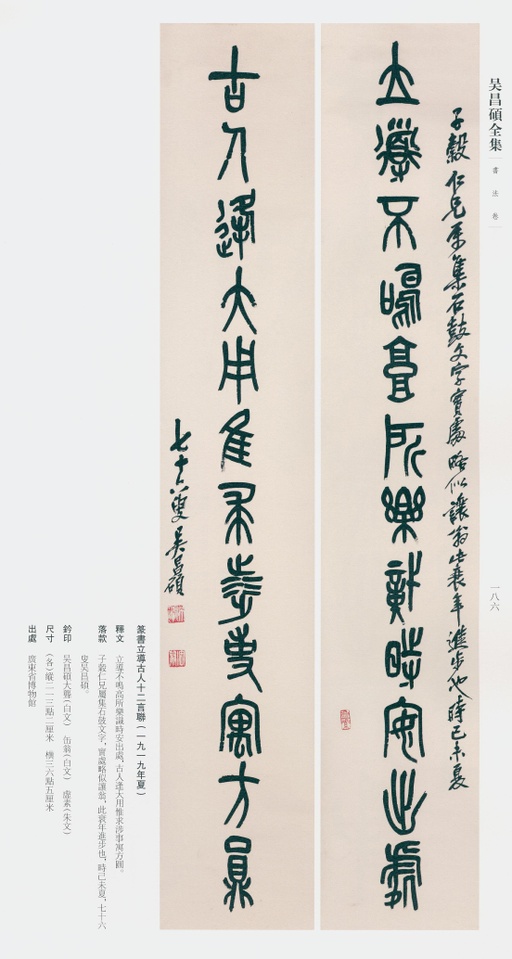 吴昌碩全集
書法卷
一八六
子穀仁兄屬集石鼓文字實處略似讓翁此衰年進步也時己未夏
立導不鳴高所樂識時安出處
古人逢大用惟求涉事寓方圓
七十六叟吳昌碩
篆書立導古人十二言聯(一九一九年夏)
釋文 立導不鳴高所樂識時安出處。古人逢大用惟求涉事寓方圓。
落款 子穀仁兄屬集石鼓文字,實處略似讓翁,此衰年進步也,時己未夏,七十六
叟吳昌碩。
鈐印 吳昌碩大聾(白文) 缶翁(白文) 虛素(朱文)
尺寸 (各)縱二一三點二厘米 橫三六點五厘米
出處 廣東省博物館